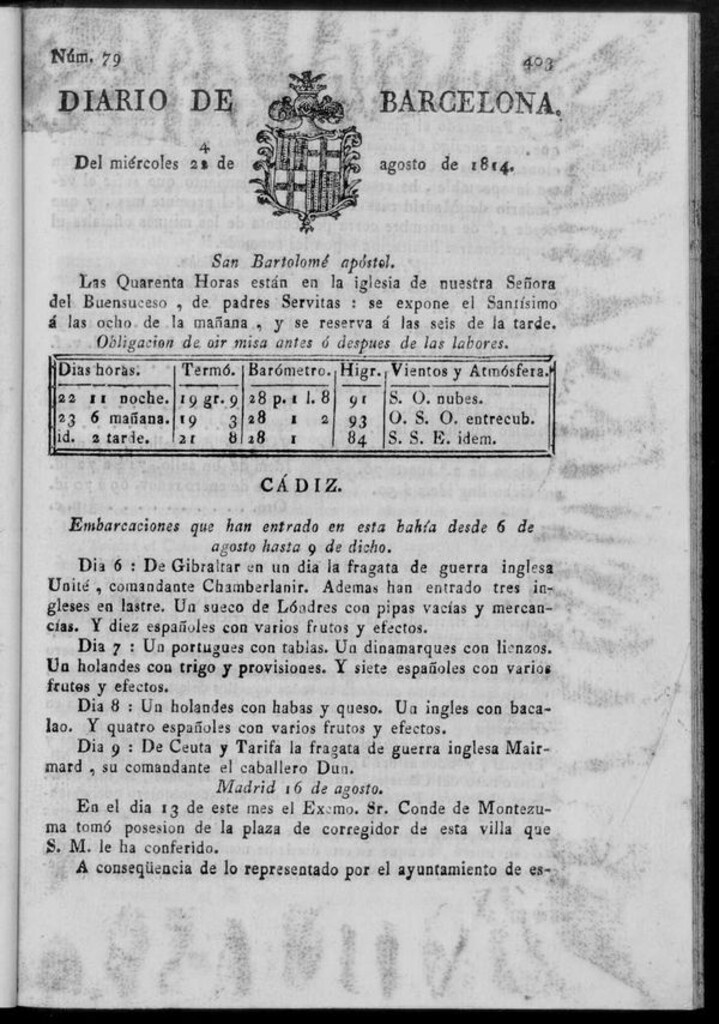 Núm. 79 403
DIARIO DE BARCELONA.
4
Del miércoles 22 de agosto de 1814.
San Bartolomé apóstol.
Las Quarenta Horas están en la iglesia de nuestra Señora
del Buensuceso , de padres Servitas : se expone el Santísimo
á las ocho de la mañana , y se reserva á las seis de la tarde.
Obligacion de oir misa antes ó despues de las labores.
Dias horas. Termó. Barómetro. Higr. Vientos y Atmósfera.
22 11 noche. 19 gr. 9 28 p. 1 l. 8 91 S. O. nubes.
23 6 mañana. 19 3 28 1 2 93 O. S. O. entrecub.
id. 2 tarde. 21 8 28 1 84 S. S. E. idem.
CÁDIZ.
Embarcaciones que han entrado en esta bahía desde 6 de
agosto hasta 9 de dicho.
Dia 6 : De Gibraltar en un dia la fragata de guerra inglesa
Unité , comandante Chamberlanir. Ademas han entrado tres in-
gleses en lastre. Un sueco de Lóndres con pipas vacías y mercan-
cías. Y diez españoles con varios frutos y efectos.
Dia 7 : Un portugues con tablas. Un dinamarques con lienzos.
Un holandes con trigo y provisiones. Y siete españoles con varios
frutos y efectos.
Dia 8 : Un holandes con habas y queso. Un ingles con baca-
lao. Y quatro españoles con varios frutos y efectos.
Dia 9 : De Ceuta y Tarifa la fragata de guerra inglesa Mair-
mard , su comandante el caballero Dun.
Madrid 16 de agosto.
En el dia 13 de este mes el Excmo. Sr. Conde de Montezu-
ma tomó posesion de la plaza de corregidor de esta villa que
S. M. le ha conferido.
A conseqüencia de lo representado por el ayuntamiento de es-